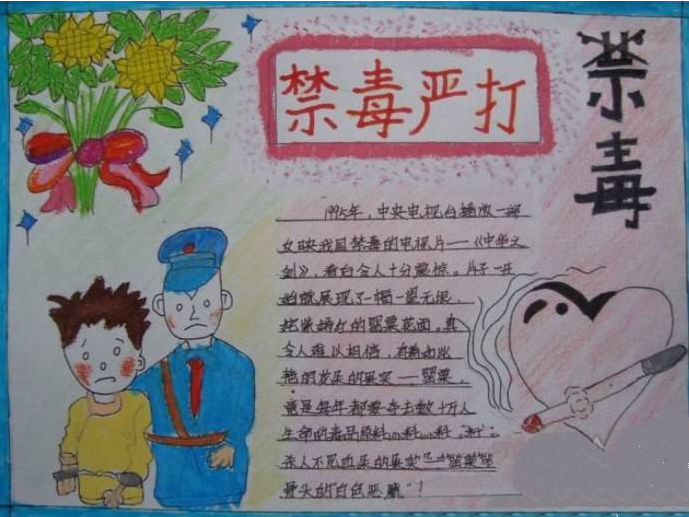 禁毒严打
禁毒
1995年，中央电视台播放一部
反映我国禁毒的电视片——《中华之
剑》，看台令人十分震惊。片子一开
始就展现了一幅一望无垠，
姹紫嫣红的罂粟花画，真
令人难以相信，
艳的花朵的果实——罂粟，
竟是每年都要夺去数十万人
生命的毒品原料
杀人不见血
骨头的“白色恶魔”！